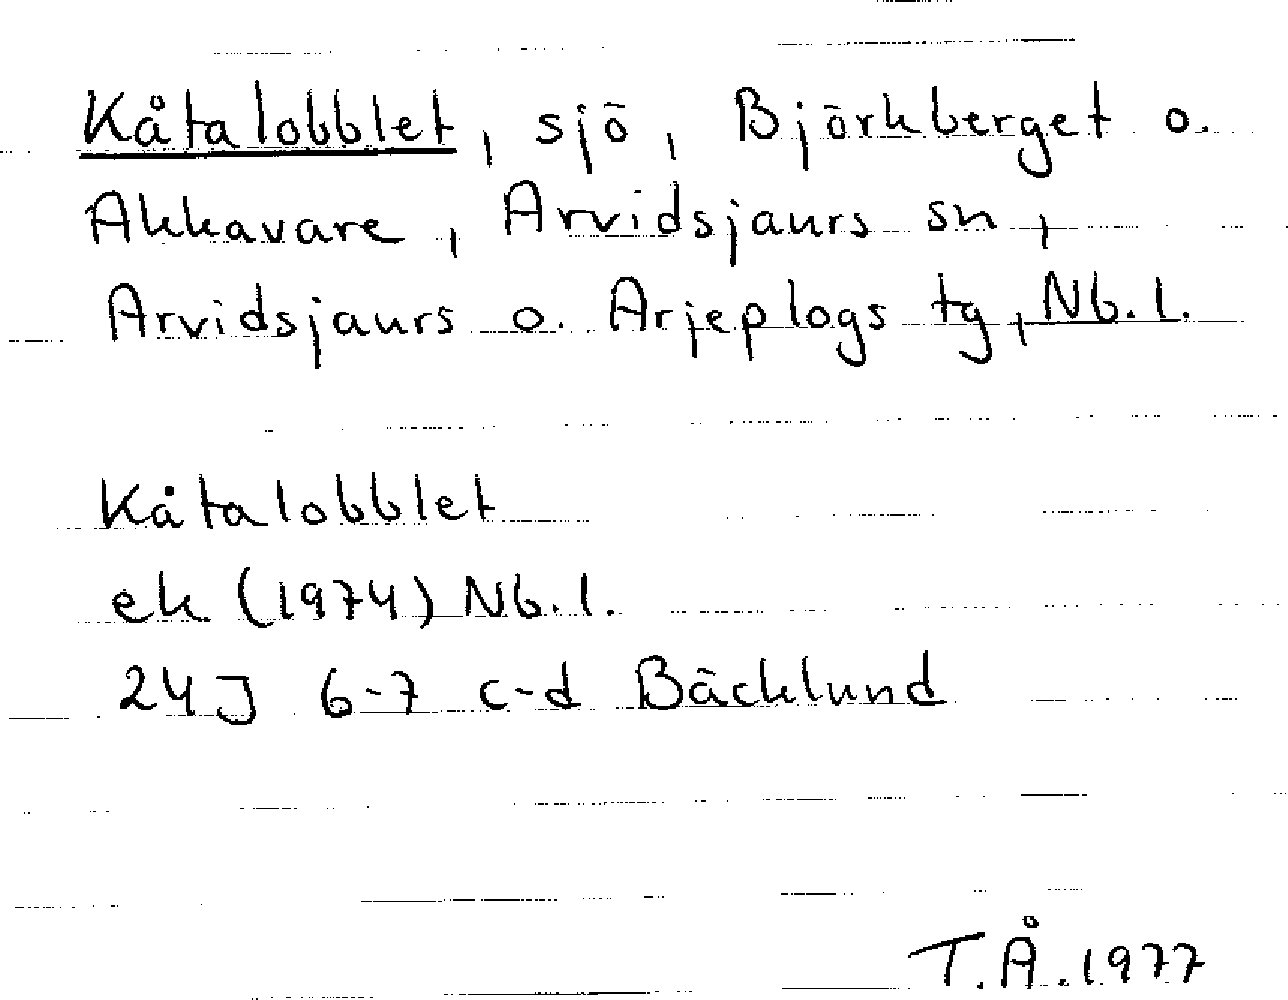 Kåtalobblet, sjö, Björkberget o.
Akkavare, Arvidsjaurs sn,
Arvidsjaurs o. Arjeplogs tg, Nb.l.
Kåtalobblet
ek (1974) Nb.l.
24J 6-7 c-d Bäcklund
T.Å.1977